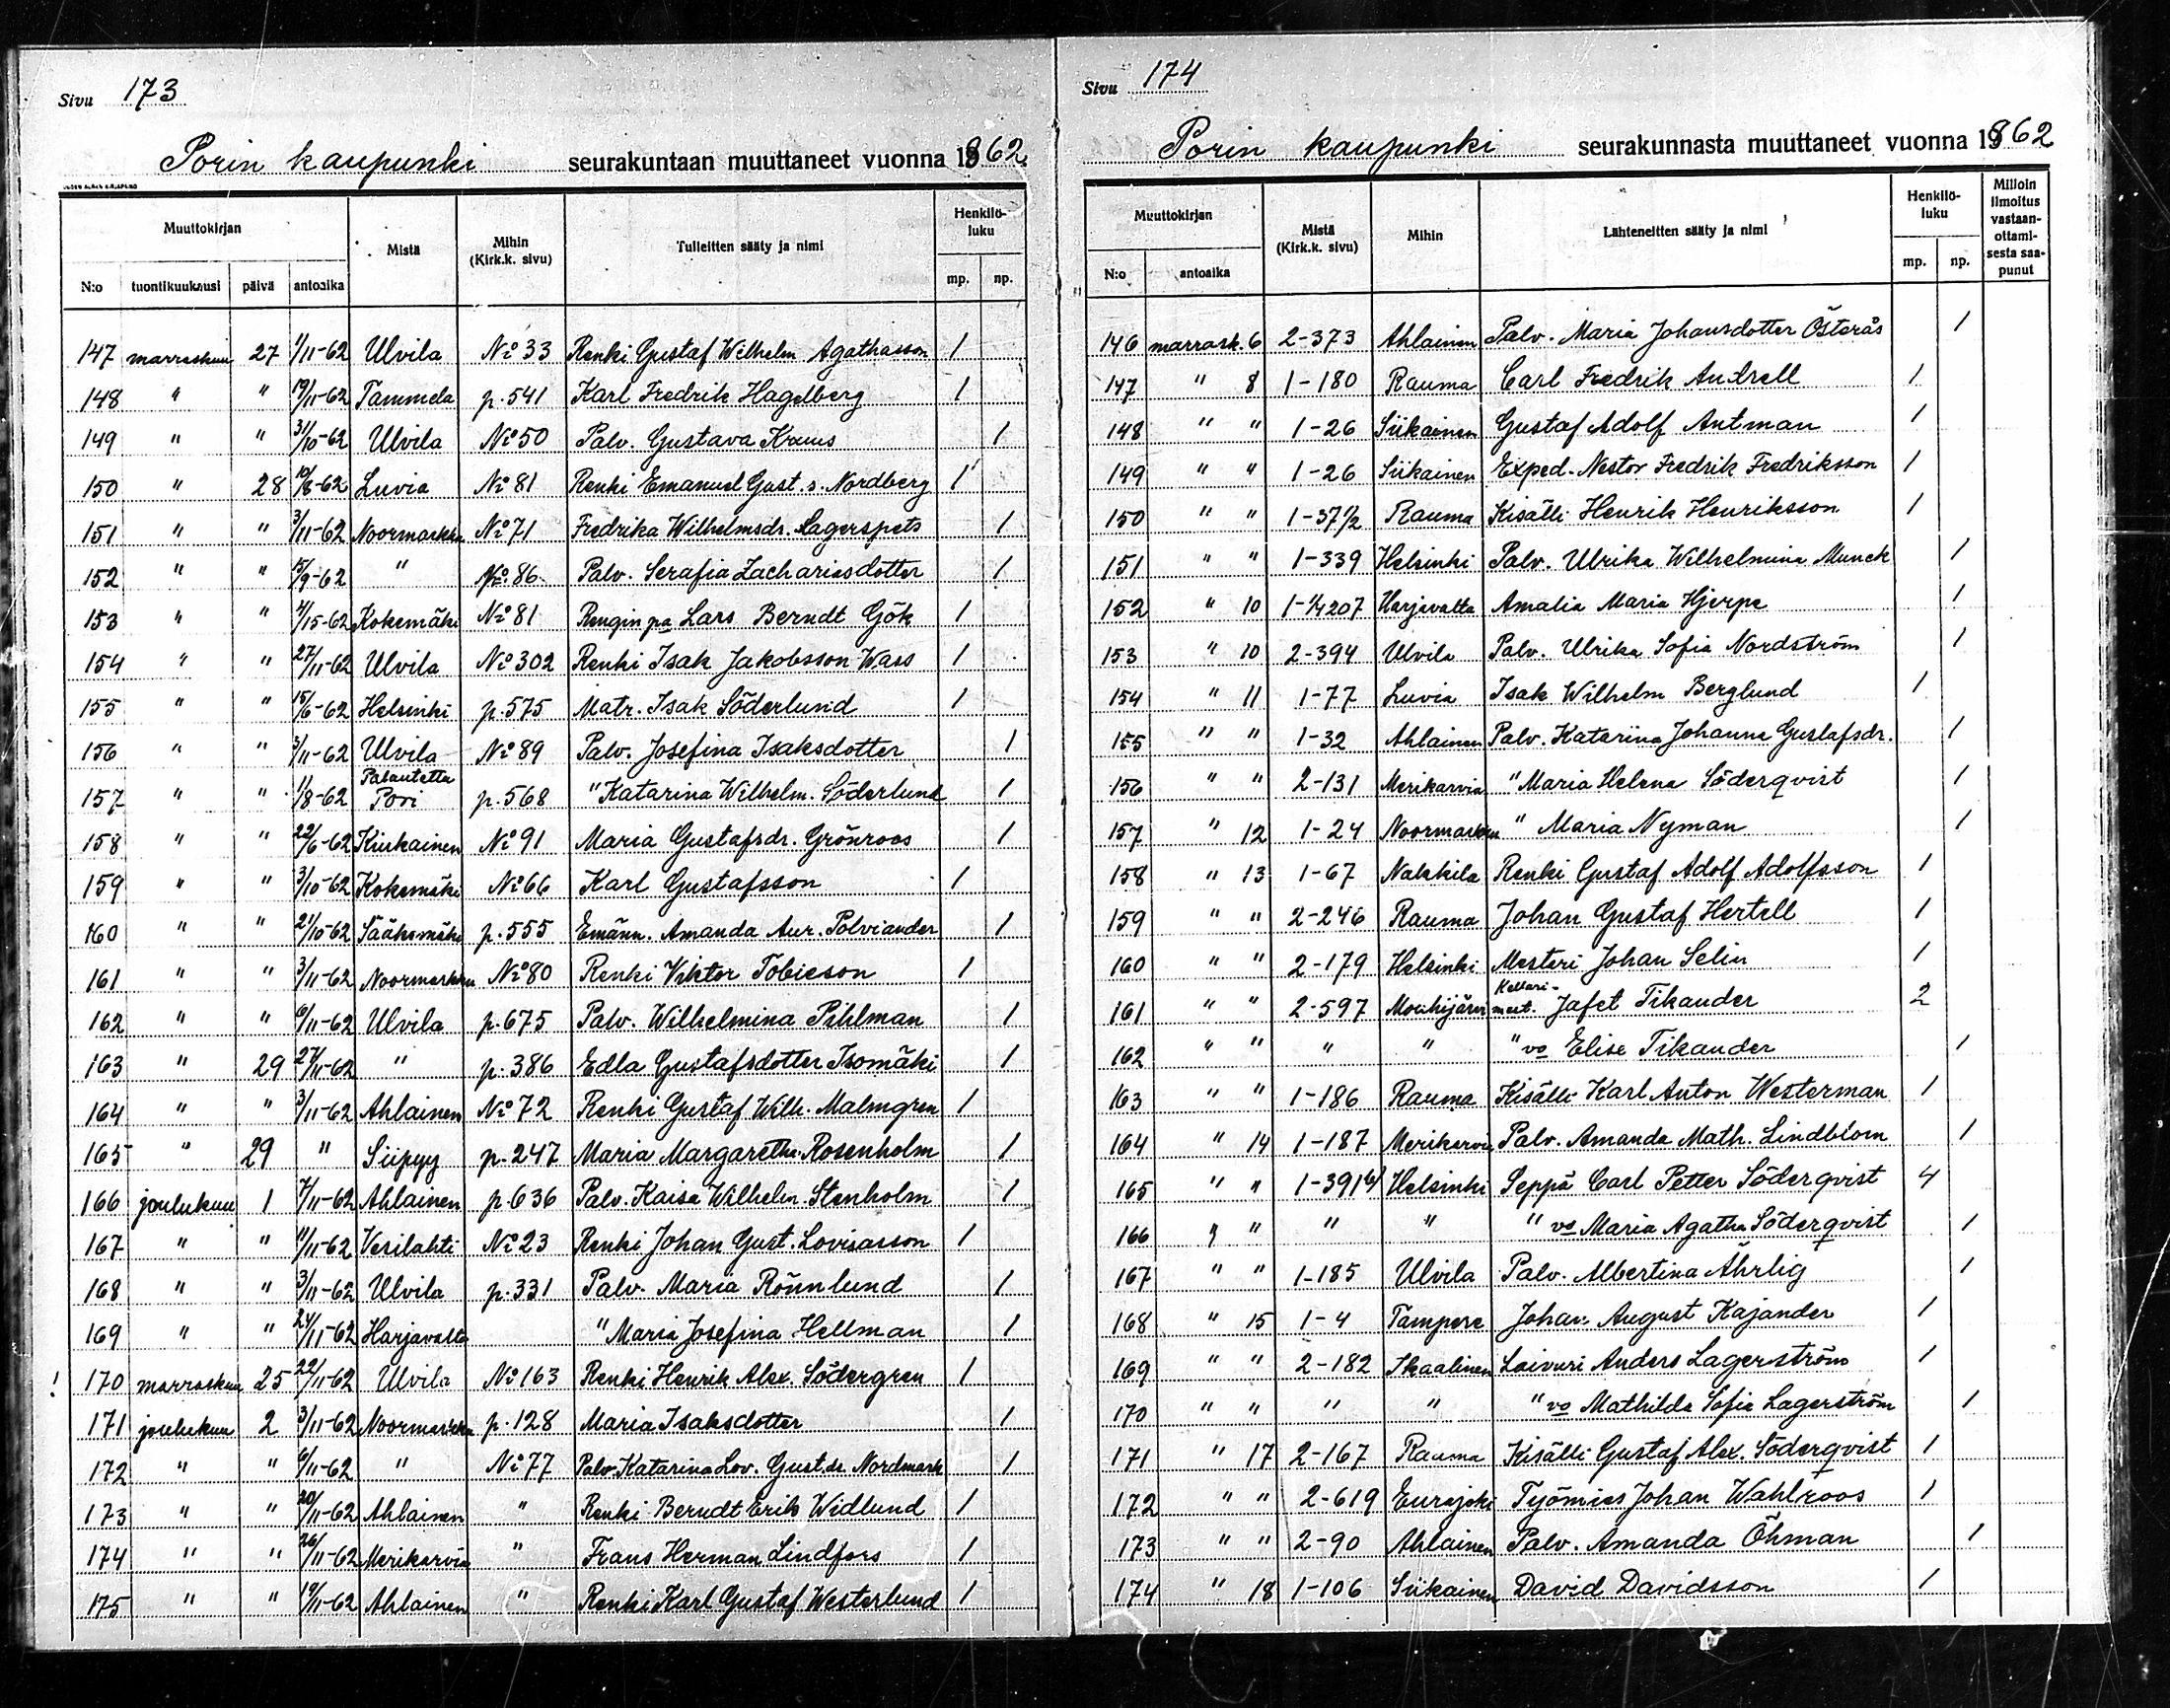 Sivu 173
Porin kaupunki seurakuntaan muuttaneet vuonna 1862
Muuttokirjan Mistä Mihin (Kirk.k. sivu) Tulleitten sääty ja nimi Henkilö-luku
N:o tuontikuukausi päivä antoaika mp. np.
147 marraskuu 27 1/11-62 Ulvila No 33 Renki Gustaf Wilhelm Agathasson 1
148 " " 19/11-62 Tammela p.541 Karl Fredrik Hagelberg 1
149 " " 31/10-62 Ulvila No 50 Palv. Gustava Kruus 1
150 " 28 10/8-62 Luvia No 81 Renki Emanuel Gust.s. Nordberg 1
151 " " 3/11-62 Noormarkku No 71 Fredrika Wilhelmsdr. Lagerspets 1
152 " " 15/9-62 " No 86 Palv. Serafia Zachariasdotter 1
153 " " 4/15-62 Kokemäki No 81 Rengin pa Lars Berndt Gök 1
154 " " 27/11-62 Ulvila No 302 Renki Isak Jakobsson Wass 1
155 " " 15/6-62 Helsinki p.575 Matr. Isak Söderlund 1
156 " " 3/11-62 Ulvila No 89 Palv. Josefina Isaksdotter 1
157 " " 1/8-62 Palautettu Pori p.568 " Katarina Wilhelm. Söderlund 1
158 " " 22/6-62 Kiukainen No 91 Maria Gustafsdr. Grönroos 1
159 " " 3/10-62 Kokemäki No 66 Karl Gustafsson 1
160 " " 21/10-62 Sääksmäki p.555 Emänn. Amanda Aur. Polviander 1
161 " " 3/11-62 Noormarkku No 80 Renki Viktor Tobieson 1
162 " " 6/11-62 Ulvila p.675 Palv. Wilhelmina Pihlman 1
163 " 29 27/11-62 " p.386 Edla Gustafsdotter Isomäki 1
164 " " 3/11-62 Ahlainen No 72 Renki Gustaf Wilh. Malmgren 1
165 " 29 " Siipyy p.247 Maria Margaretha Rosenholm 1
166 joulukuu 1 7/11-62 Ahlainen p.636 Palv. Kaisa Wilhelm. Stenholm 1
167 " " 11/11-62 Vesilahti No 23 Renki Johan Gust. Lovisasson 1
168 " " 3/11-62 Ulvila p.331 Palv. Maria Rönnlund 1
169 " " 24/11-62 Harjavalta " Maria Josefina Hellman 1
! 170 marraskuu 25 22/11-62 Ulvila No 163 Renki Henrik Alex. Södergren 1
171 joulukuu 2 3/11-62 Noormarkku p.128 Maria Isaksdotter 1
172 " " 6/11-62 " No 77 Palv. Katarina Lov. Gust.dr. Nordmark 1
173 " " 20/11-62 Ahlainen " Renki Berndt Erik Widlund 1
174 " " 26/11-62 Merikarvia " Frans Herman Lindfors 1
175 " " 19/11-62 Ahlainen " Renki Karl Gustaf Westerlund 1
Sivu 174
Porin kaupunki seurakunnasta muuttaneet vuonna 1862
Muuttokirjan Mistä (Kirk.k. sivu) Mihin Lähteneitten sääty ja nimi Henkilö-luku Milloin ilmoitus vastaan-ottami-sesta saa-punut
N:o antoaika mp. np.
146 marrask. 6 2-373 Ahlainen Palv. Maria Johansdotter Österås 1
147 " 8 1-180 Rauma Carl Fredrik Andrell 1
148 " " 1-26 Siikainen Gustaf Adolf Antman 1
149 " " 1-26 Siikainen Exped. Nestor Fredrik Fredriksson 1
150 " " 1-37 1/2 Rauma Kisälli Henrik Henriksson 1
151 " " 1-339 Helsinki Palv. Ulrika Wilhelmina Munck 1
152 " 10 1-1/4207 Harjavalta Amalia Maria Hjerpe 1
153 " 10 2-394 Ulvila Palv. Ulrika Sofia Nordström 1
154 " 11 1-77 Luvia Isak Wilhelm Berglund 1
155 " " 1-32 Ahlainen Palv. Katarina Johanna Gustafsdr. 1
156 " " 2-131 Merikarvia " Maria Helena Söderqvist 1
157 " 12 1-24 Noormarkku " Maria Nyman 1
158 " 13 1-67 Nakkila Renki Gustaf Adolf Adolfsson 1
159 " " 2-246 Rauma Johan Gustaf Hertell 1
160 " " 2-179 Helsinki Mestari Johan Selin 1
161 " " 2-597 Mouhijärvi Kellari-mest. Jafet Tikander 2
162 " " " " " vo Elise Tikander 1
163 " " 1-186 Rauma Kisälli Karl Anton Westerman 1
164 " 14 1-187 Merikarvia Palv. Amanda Math. Lindblom 1
165 " " 1-391 Helsinki Seppä Carl Petter Söderqvist 4
166 " " " " " vo Maria Agatha Söderqvist 1
167 " " 1-185 Ulvila Palv. Albertina Ährlig 1
168 " 15 1-4 Tampere Johan August Kajander 1
169 " " 2-182 Ikaalinen Laivuri Anders Lagerström 1
170 " " " " " vo Mathilda Sofia Lagerström 1
171 " 17 2-167 Rauma Kisälli Gustaf Alex. Söderqvist 1
172 " " 2-619 Eurajoki Työmies Johan Wahlroos 1
173 " " 2-90 Ahlainen Palv. Amanda Öhman 1
174 " 18 1-106 Siikainen David Davidsson 1